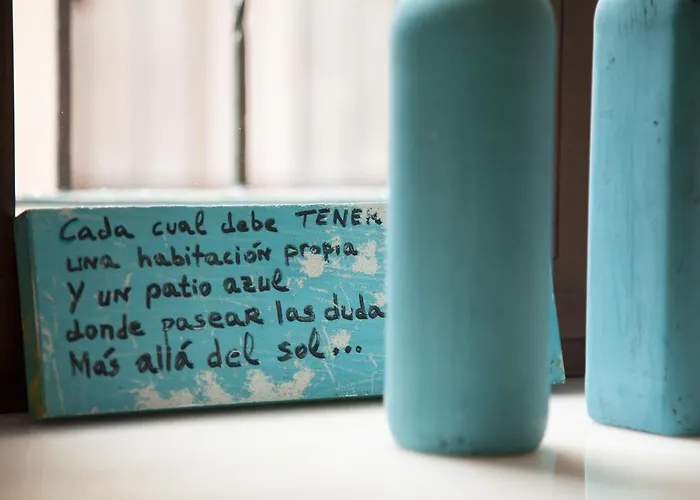 Cada cual debe TENER
una habitación propia
Y un patio azul
donde pasear las duda
Más allá del sol...